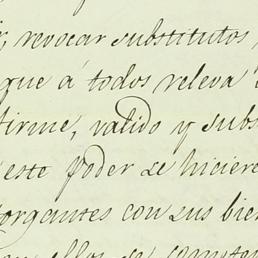 , revocar substitutos,
que á todos releva
firme, valido y subs
este poder se hiciere
organtes con sus bien